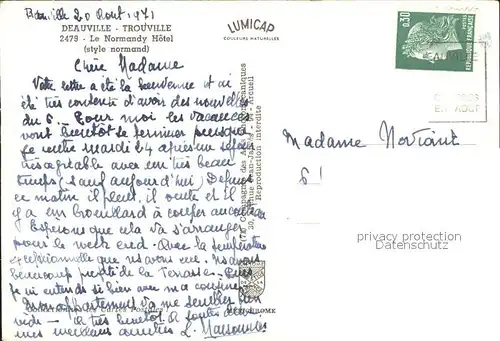 Deauville 20 Août 1971
DEAUVILLE - TROUVILLE
2479 - Le Normandy Hôtel
(style normand)
LUMICAP
COULEURS NATURELLES
0,30
DEAUVILLE
EN AOUT
Chère Madame
Votre lettre a été la bienvenue et j'ai
été très contente d'avoir des nouvelles
du 6. Pour moi les vacances
vont bientôt se terminer puisque
je rentre mardi 24 après un séjour
très agréable avec un très beau
temps (sauf aujourd'hui) Depuis
ce matin il pleut, il vente et il
y a un brouillard à couper au couteau
Espérons que cela va s'arranger
pour le week end. Avec la température
exceptionnelle que nous avons eue. Nous avons
beaucoup profité de la Terrasse. Puis
je m'entends si bien avec ma cousine
Mon appartement va me sembler bien
vide - A très bientôt à toutes deux
mes meilleures amitiés
Compagnie des Arts Photomécaniques
Reproduction interdite
Madame
6!
privacy protection
Datenschutz